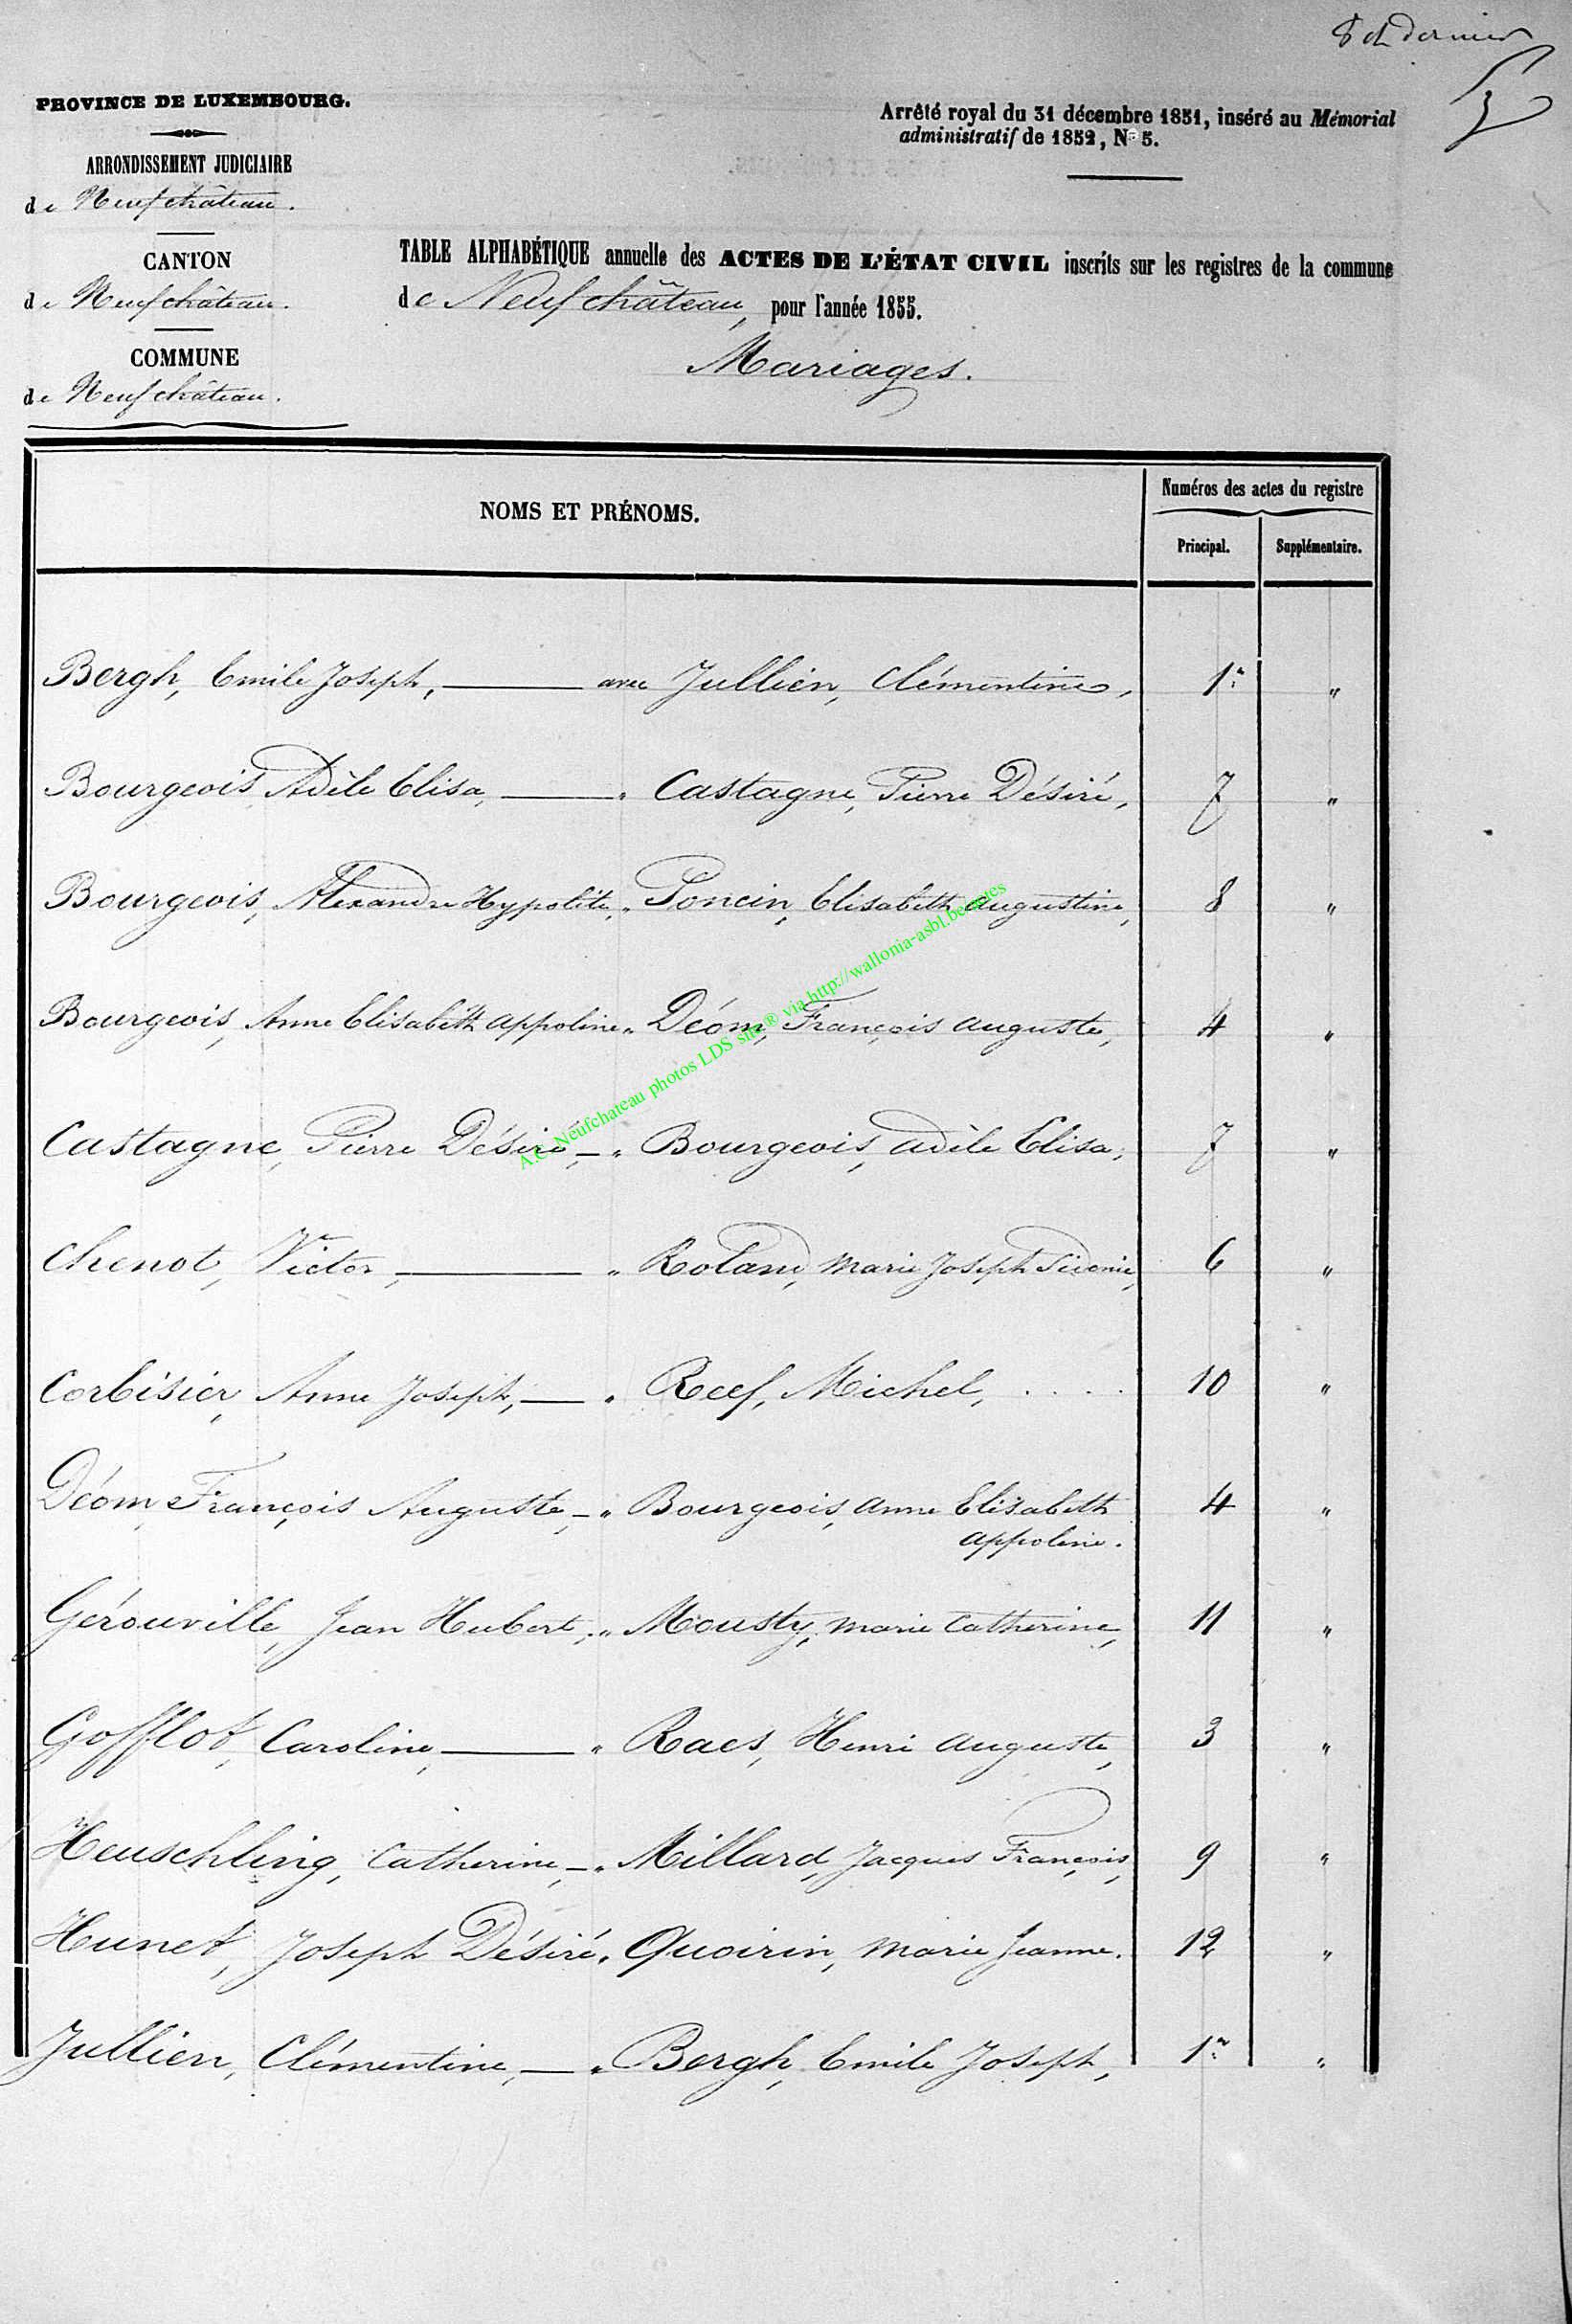 8 et dernier
PROVINCE DE LUXEMBOURG.
Arrêté royal du 31 décembre 1851, inséré au Mémorial
administratif de 1852, N° 5.
ARRONDISSEMENT JUDICIAIRE
de Neufchâteau.
CANTON
de Neufchâteau.
COMMUNE
de Neufchâteau.
TABLE ALPHABÉTIQUE annuelle des ACTES DE L'ÉTAT CIVIL inscrits sur les registres de la commune
de Neufchâteau, pour l'année 1855.
Mariages.
NOMS ET PRÉNOMS.
Numéros des actes du registre
Principal. Supplémentaire.
Bergh, Emile Joseph, — avec Jullien, Clémentine, 1er "
Bourgeois, Adèle Elisa, — " Castagne, Pierre Désiré, 7 "
Bourgeois, Alexandre Hypolite, " Poncin, Elisabeth Augustine, 8 "
Bourgeois, Anne Elisabeth Appoline " Déom, François Auguste, 4 "
Castagne, Pierre Désiré, — " Bourgeois, Adèle Elisa, 7 "
Chenot, Victor, — " Roland, Marie Joseph Sidonie, 6 "
Corbisier, Anne Joseph, — " Reef, Michel, .... 10 "
Déom, François Auguste, — " Bourgeois, Anne Elisabeth 4 "
Appoline.
Gérouville, Jean Hubert, " Mousty, Marie Catherine, 11 "
Gofflot, Caroline, — " Raes, Henri Auguste, 3 "
Heuschling, Catherine, — " Millard, Jacques François, 9 "
Hunet, Joseph Désiré, " Quoirin, Marie Jeanne. 12 "
Jullien, Clémentine, — " Bergh, Emile Joseph, 1er "
A.C. Neufchateau photos LDS site ® via http://wallonia-asbl.be/actes